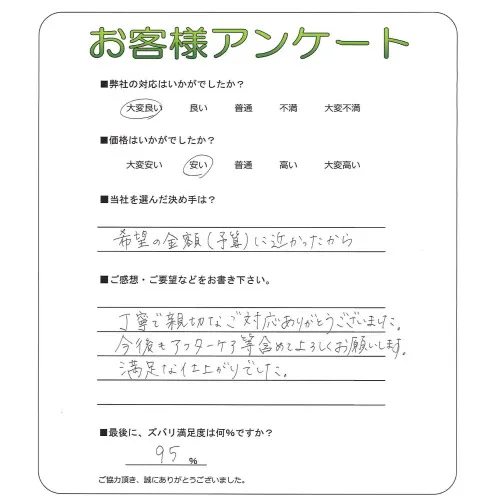 お客様アンケート
■弊社の対応はいかがでしたか？
大変良い 良い 普通 不満 大変不満
■価格はいかがでしたか？
大変安い 安い 普通 高い 大変高い
■当社を選んだ決め手は？
希望の金額(予算)に近かったから
■ご感想・ご要望などをお書き下さい。
丁寧で親切なご対応ありがとうございました。
今後もアフターケア等含めてよろしくお願いします。
満足な仕上がりでした。
■最後に、ズバリ満足度は何%ですか？
95 %
ご協力頂き、誠にありがとうございました。